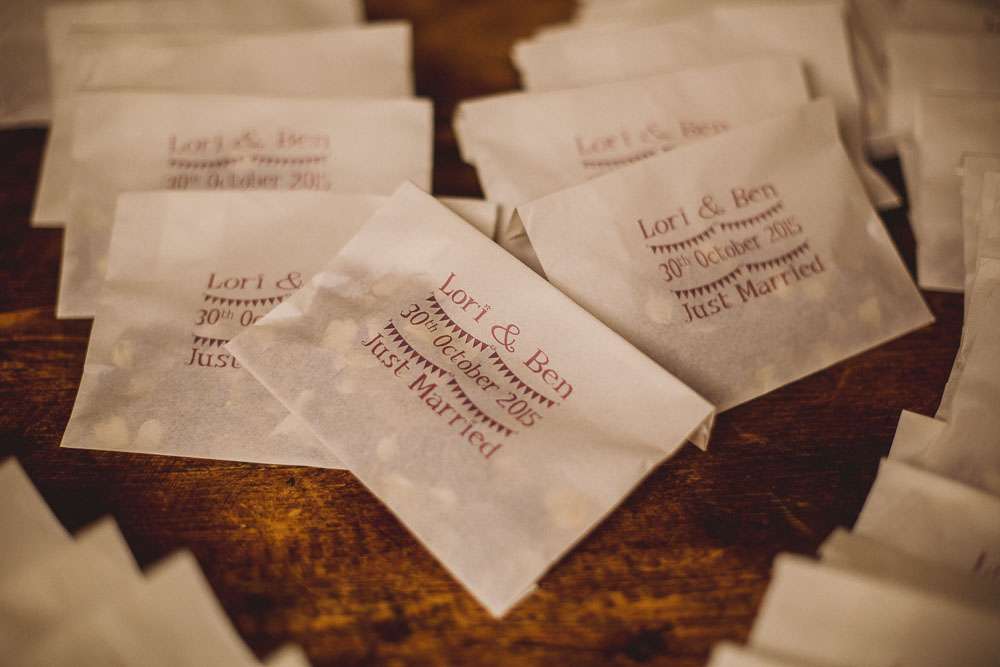 Lori & Ben
30th October 2015
Lori & Ben
Lori & Ben
30th October 2015
Just Married
Lori &
30th Oc
Just
Lori & Ben
30th October 2015
Just Married